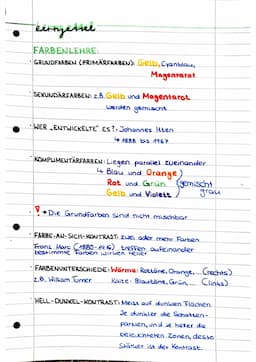 Lernzettel
FARBENLEHRE:
· GRUNDFARBEN (PRIMÄRFARBEN): Gelb, Cyanblau,
Magentarot
· SEKUNDÄRFARBEN: z.B. Gelb und Magentarot
werden gemischt
· WER „ENTWICKELTE“ ES?: Johannes Itten
↳ 1888 bis 1967
· KOMPLIMENTÄRFARBEN: Liegen parallel zueinander
↳ Blau und Orange
Rot und Grün (gemischt
Gelb und Violett grau
! → Die Grundfarben sind nicht mischbar
· FARBE-AN-SICH-KONTRAST: zwei oder mehr Farben
Franz Marc (1880-1916) treffen aufeinander
bestimmte Farben wirken
· FARBENUNTERSCHIEDE: Warme: Rottöne, Orange,... (rechts)
z.B. William Turner Kalte: Blautöne, Grün,... (links)
· HELL-DUNKEL-KONTRAST: Meist auf dunklen Flächen
Je dunkler die Schatten-
partien, und je heller die
beleuchteten Zonen, desto
stärker ist der Kontrast.